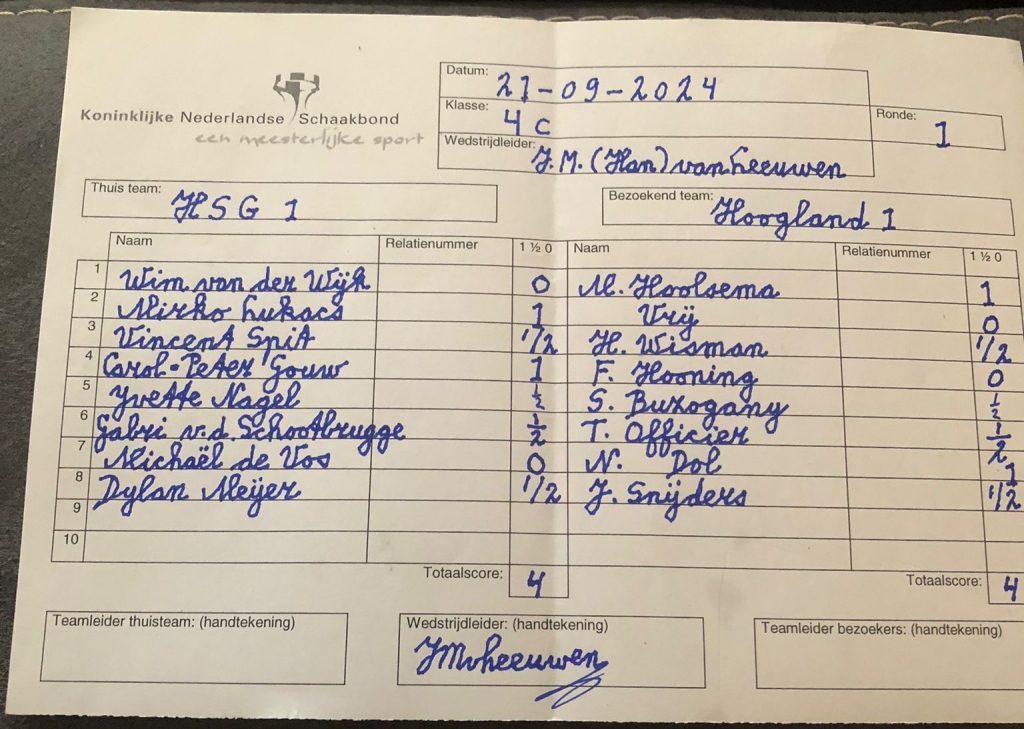 Koninklijke Nederlandse Schaakbond
een meesterlijke sport
Datum: 21-09-2024
Klasse: 4 C
Ronde: 1
Wedstrijdleider: J.M. (Han) van Leeuwen
Thuis team: HSG 1
Bezoekend team: Hoogland 1
Naam Relatienummer 1 ½ 0 Naam Relatienummer 1 ½ 0
1 Wim van der Wijk 0 M. Hoolsema 1
2 Mirko Lukacs 1 Vrij 0
3 Vincent Spit 1/2 H. Wisman 1/2
4 Carol-Peter Gouw 1 F. Hooning 0
5 Yvette Nagel ½ S. Buzogany ½
6 Gabri v.d. Schootbrugge ½ T. Officier ½
7 Michaël de Vos 0 N. Dol 1
8 Dylan Meijer 1/2 J. Snijders 1/2
9
10
Totaalscore: 4 Totaalscore: 4
Teamleider thuisteam: (handtekening) Wedstrijdleider: (handtekening) Teamleider bezoekers: (handtekening)
JMvLeeuwen